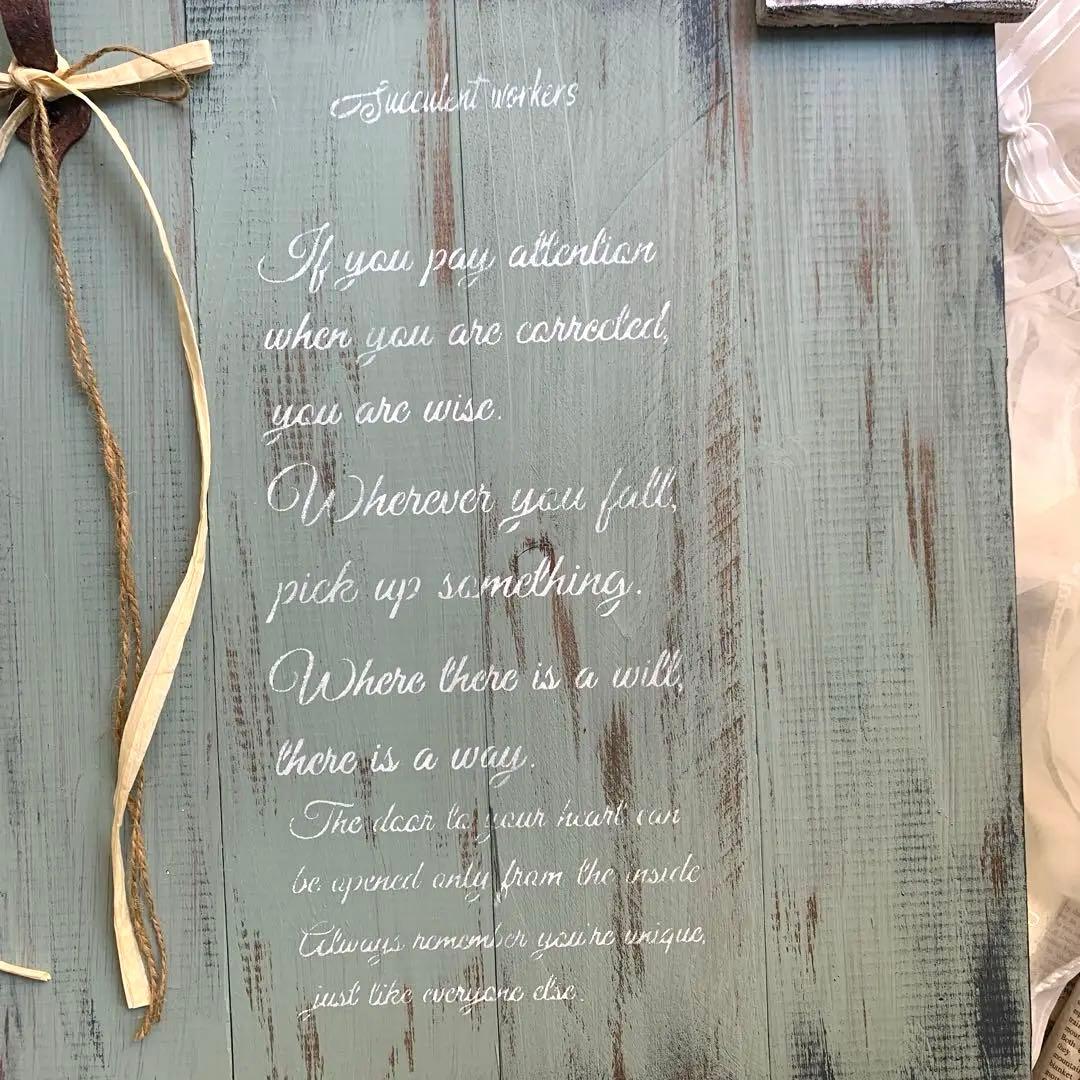 Succulent workers
If you pay attention
when you are corrected,
you are wise.
Wherever you fall,
pick up something.
Where there is a will,
there is a way.
The door to your heart can
be opened only from the inside
Always remember you're unique,
just like everyone else.
both
they
blanket